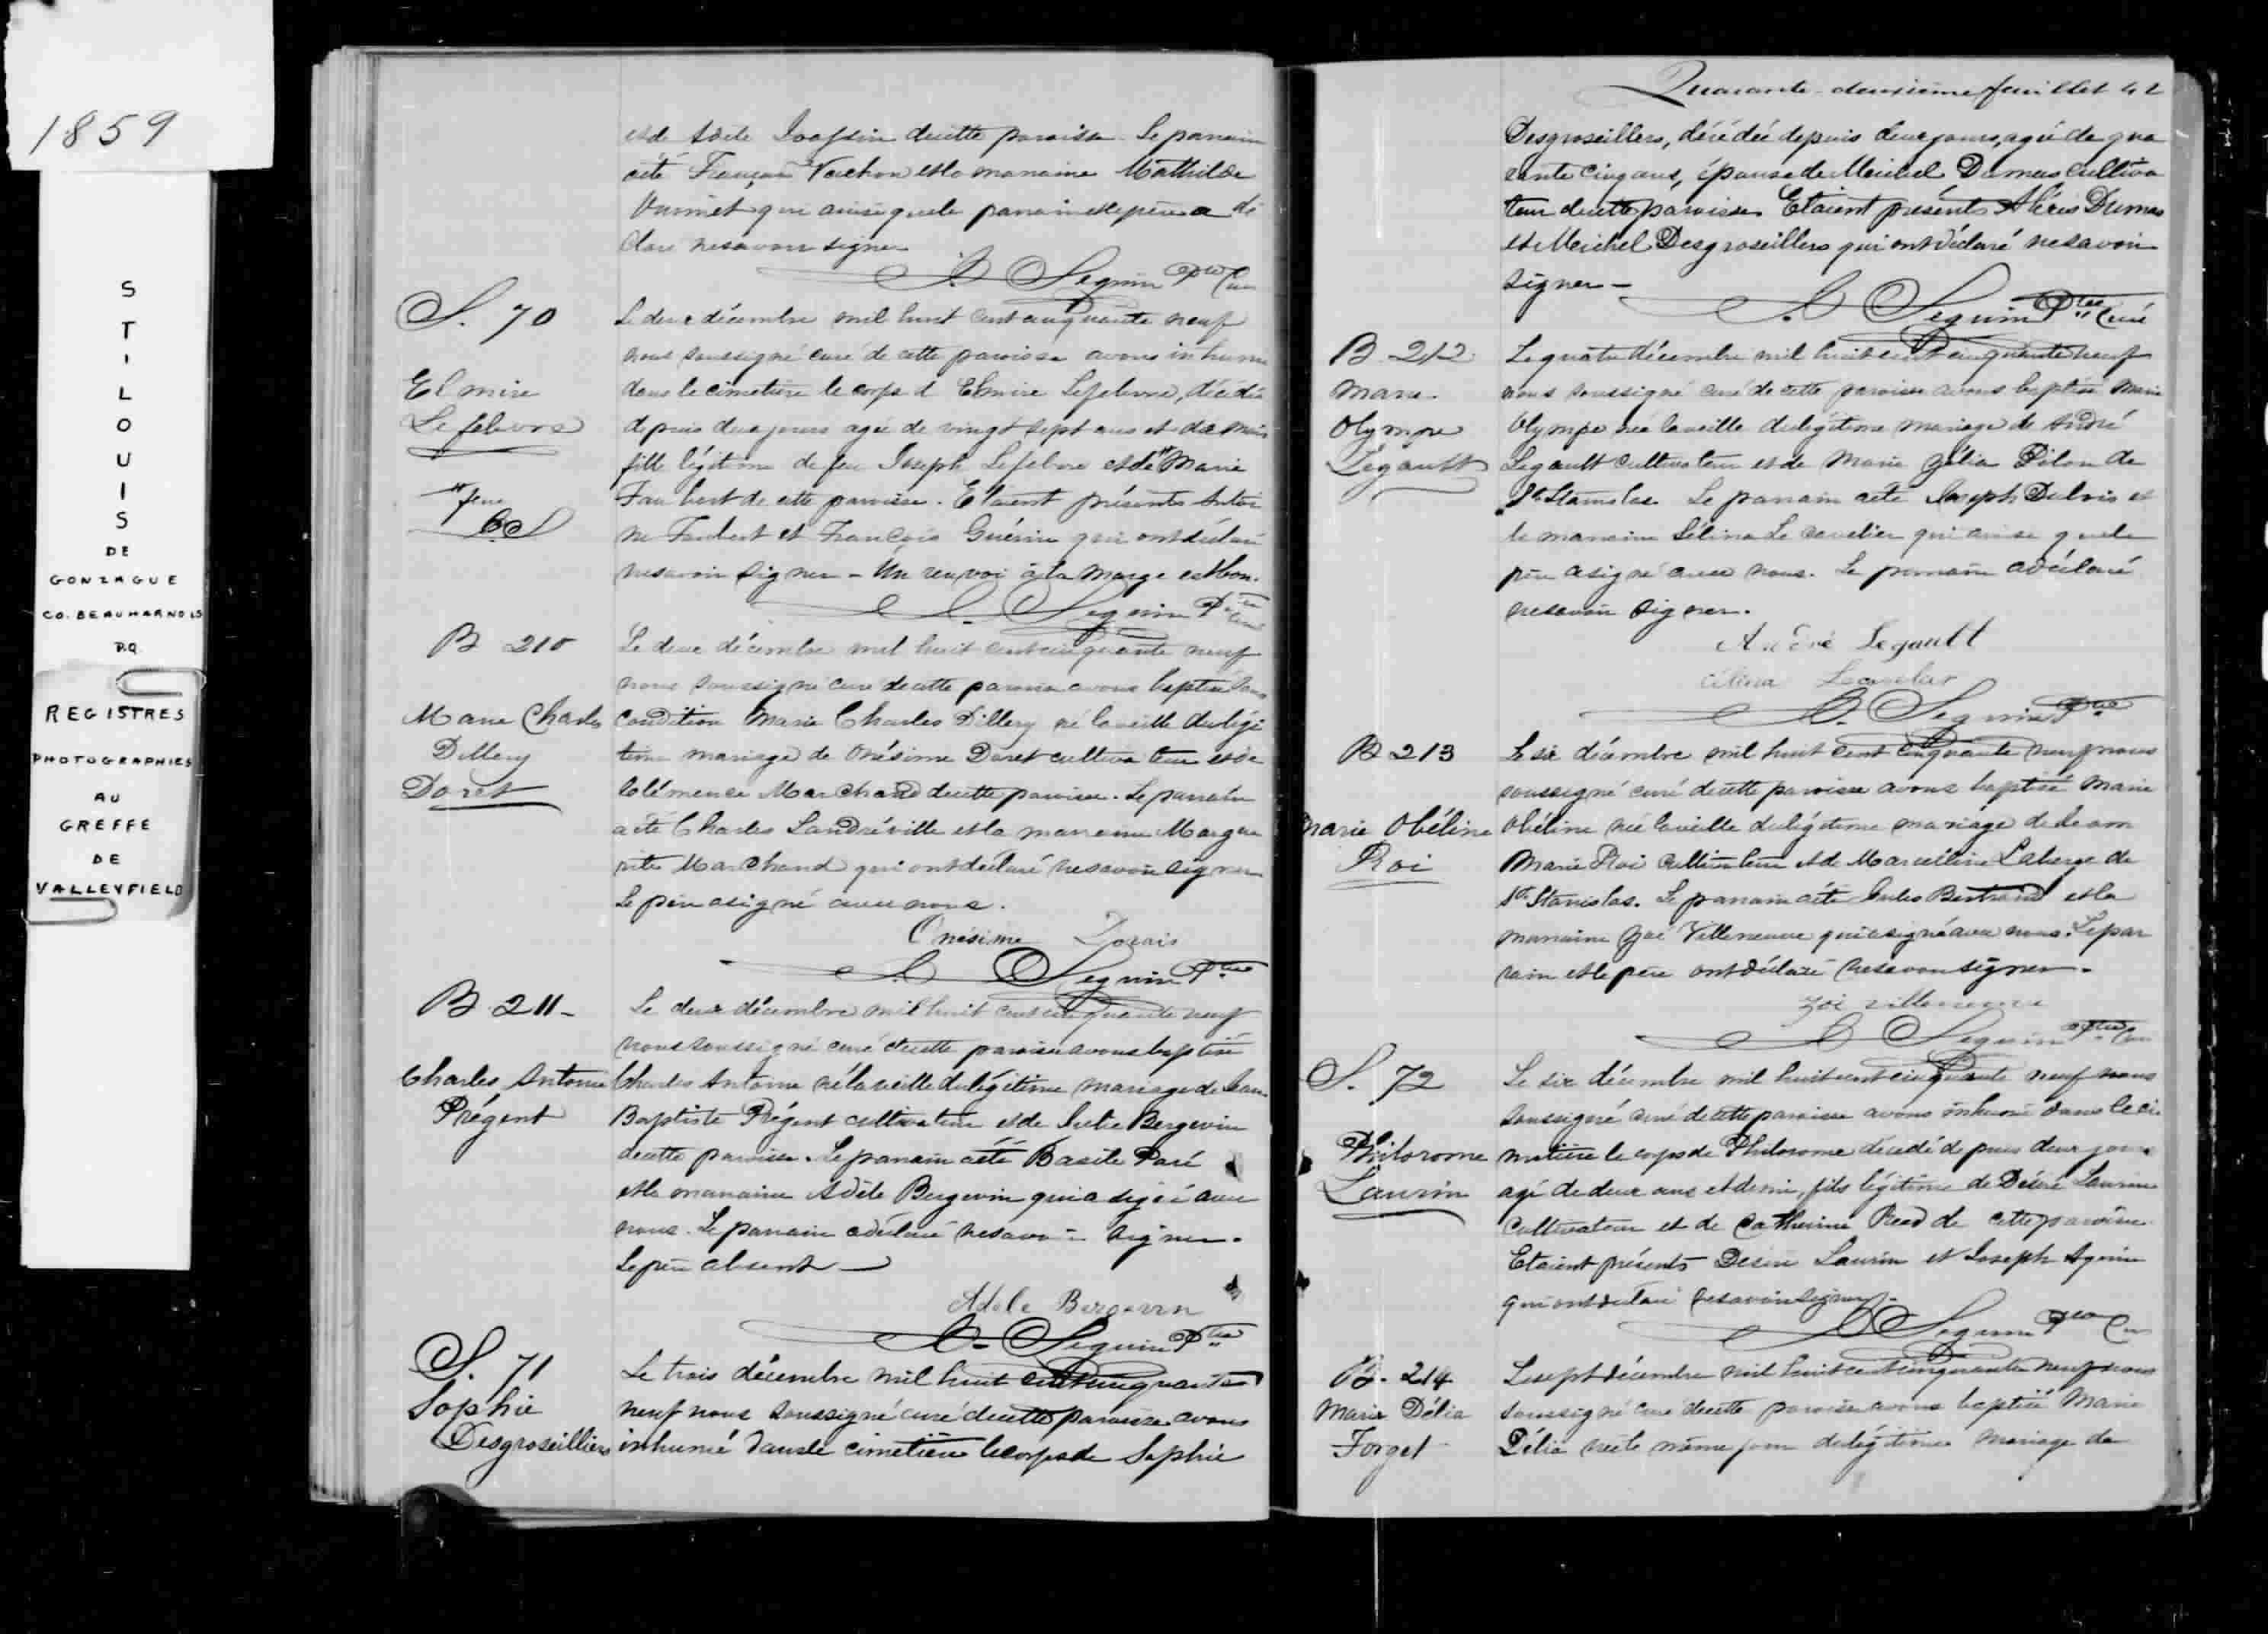 1859
S
T
L
O
U
I
S
DE
GONZAGUE
CO. BEAUHARNOIS
P.Q.
REGISTRES
PHOTOGRAPHIES
AU
GREFFE
DE
VALLEYFIELD
et de Adèle decette paroisse. Le parain
aété François Vachon et la maraine Mathilde
qui ainsi que le parain et le père a dé
claré nesavoir signer
Seguin Ptre Curé
S. 70
Elmire
Lefebvre
Le deux décembre mil huit cent cinquante neuf
nous soussigné curé de cette paroisse avons inhumé
dans le cimetière le corps d Elmire Lefebvre, décédée
depuis deux jours agée de vingt sept ans et dix mois
fille légitime de feu Joseph Lefebvre et de Marie
Faubert de cette paroisse. Etaient présents Antoi
ne Faubert et François Guérin qui ont déclaré
nesavoir signer - Un renvoi à la marge est bon.
Seguin Ptre Curé
B 210
Marie Charles
Dillery
Doret
Le deux décembre mil huit cent cinquante neuf
nous soussigné curé decette paroisse avons baptisé sous
condition Marie Charles Dillery né la veille du légi
time mariage de Onésime Doret cultivateur et de
Clémence Marchand decette paroisse. Le parrain
aété Charles Landréville et la maraine Margue
rite Marchand qui ont déclaré nesavoir signer
Le père a signé avec nous.
Onésime Dorais
Seguin Ptre
B 211 -
Charles Antoine
Prégent
Le deux décembre mil huit cent cinquante neuf
nous soussigné curé decette paroisse avons baptisé
Charles Antoine né la veille du légitime mariage de Jean
Baptiste Prégent cultivateur et de Julie Bergevin
decette paroisse. Le parain aété Basile Paré
et la maraine Adèle Bergevin qui a signé avec
nous. Le parrain a déclaré nesavoir signer.
Le père absent
Adele Bergevin
Seguin Ptre
S. 71
Sophie
Desgroseilliers
Le trois décembre mil huit cent cinquante
neuf nous soussigné curé decette paroisse avons
inhumé dans le cimetière le corps de Sophie
Quarante-deuxième feuillet 42
Desgroseillers, décédée depuis deux jours, agée de qua
rante cinq ans, épouse de Meichel Dumas cultiva
teur decette paroisse. Etaient présents Aléxis Dumas
et Meichel Desgroseillers qui ont déclaré nesavoir
signer -
Seguin Ptre Curé
B 212
Marie
Olympe
Legault
Le quatre décembre mil huit cent cinquante neuf
nous soussigné curé de cette paroisse avons baptisé Marie
Olympe née la veille du légitime mariage de André
Legault cultivateur et de Marie Zélia Pilon de
St Stanislas. Le parrain aété Joseph Dubois et
la maraine Célina Lecavelier qui ainsi que le
père a signé avec nous. Le parrain a déclaré
nesavoir signer.
André Legault
Seguin Ptre
B 213
Marie Obéline
Roi
Le six décembre mil huit cent cinquante neuf nous
soussigné curé decette paroisse avons baptisé Marie
Obéline née la veille du légitime mariage de Jean
Marie Roi cultivateur et de Marcelline Laberge de
St Stanislas. Le parrain aété Jules Bertrand et la
maraine Zoé Villeneuve qui a signé avec nous. Le par
rain et le père ont déclaré nesavoir signer.
Zoé villeneuve
Seguin Ptre Curé
S. 72
Philorome
Laurin
Le six décembre mil huit cent cinquante neuf nous
soussigné curé decette paroisse avons inhumé dans le ci
metière le corps de Philorome décédé depuis deux jours
agé de deux ans et demi, fils légitime de Désiré Laurin
Cultivateur et de Catherine Reed de cette paroisse.
Etaient présents Désiré Laurin et Joseph
qui ont déclaré nesavoir signer.
Seguin Ptre Curé
B. 214
Marie Délia
Forget
Le sept décembre mil huit cent cinquante neuf nous
soussigné curé decette paroisse avons baptisé Marie
Délia née le même jour du légitime mariage de